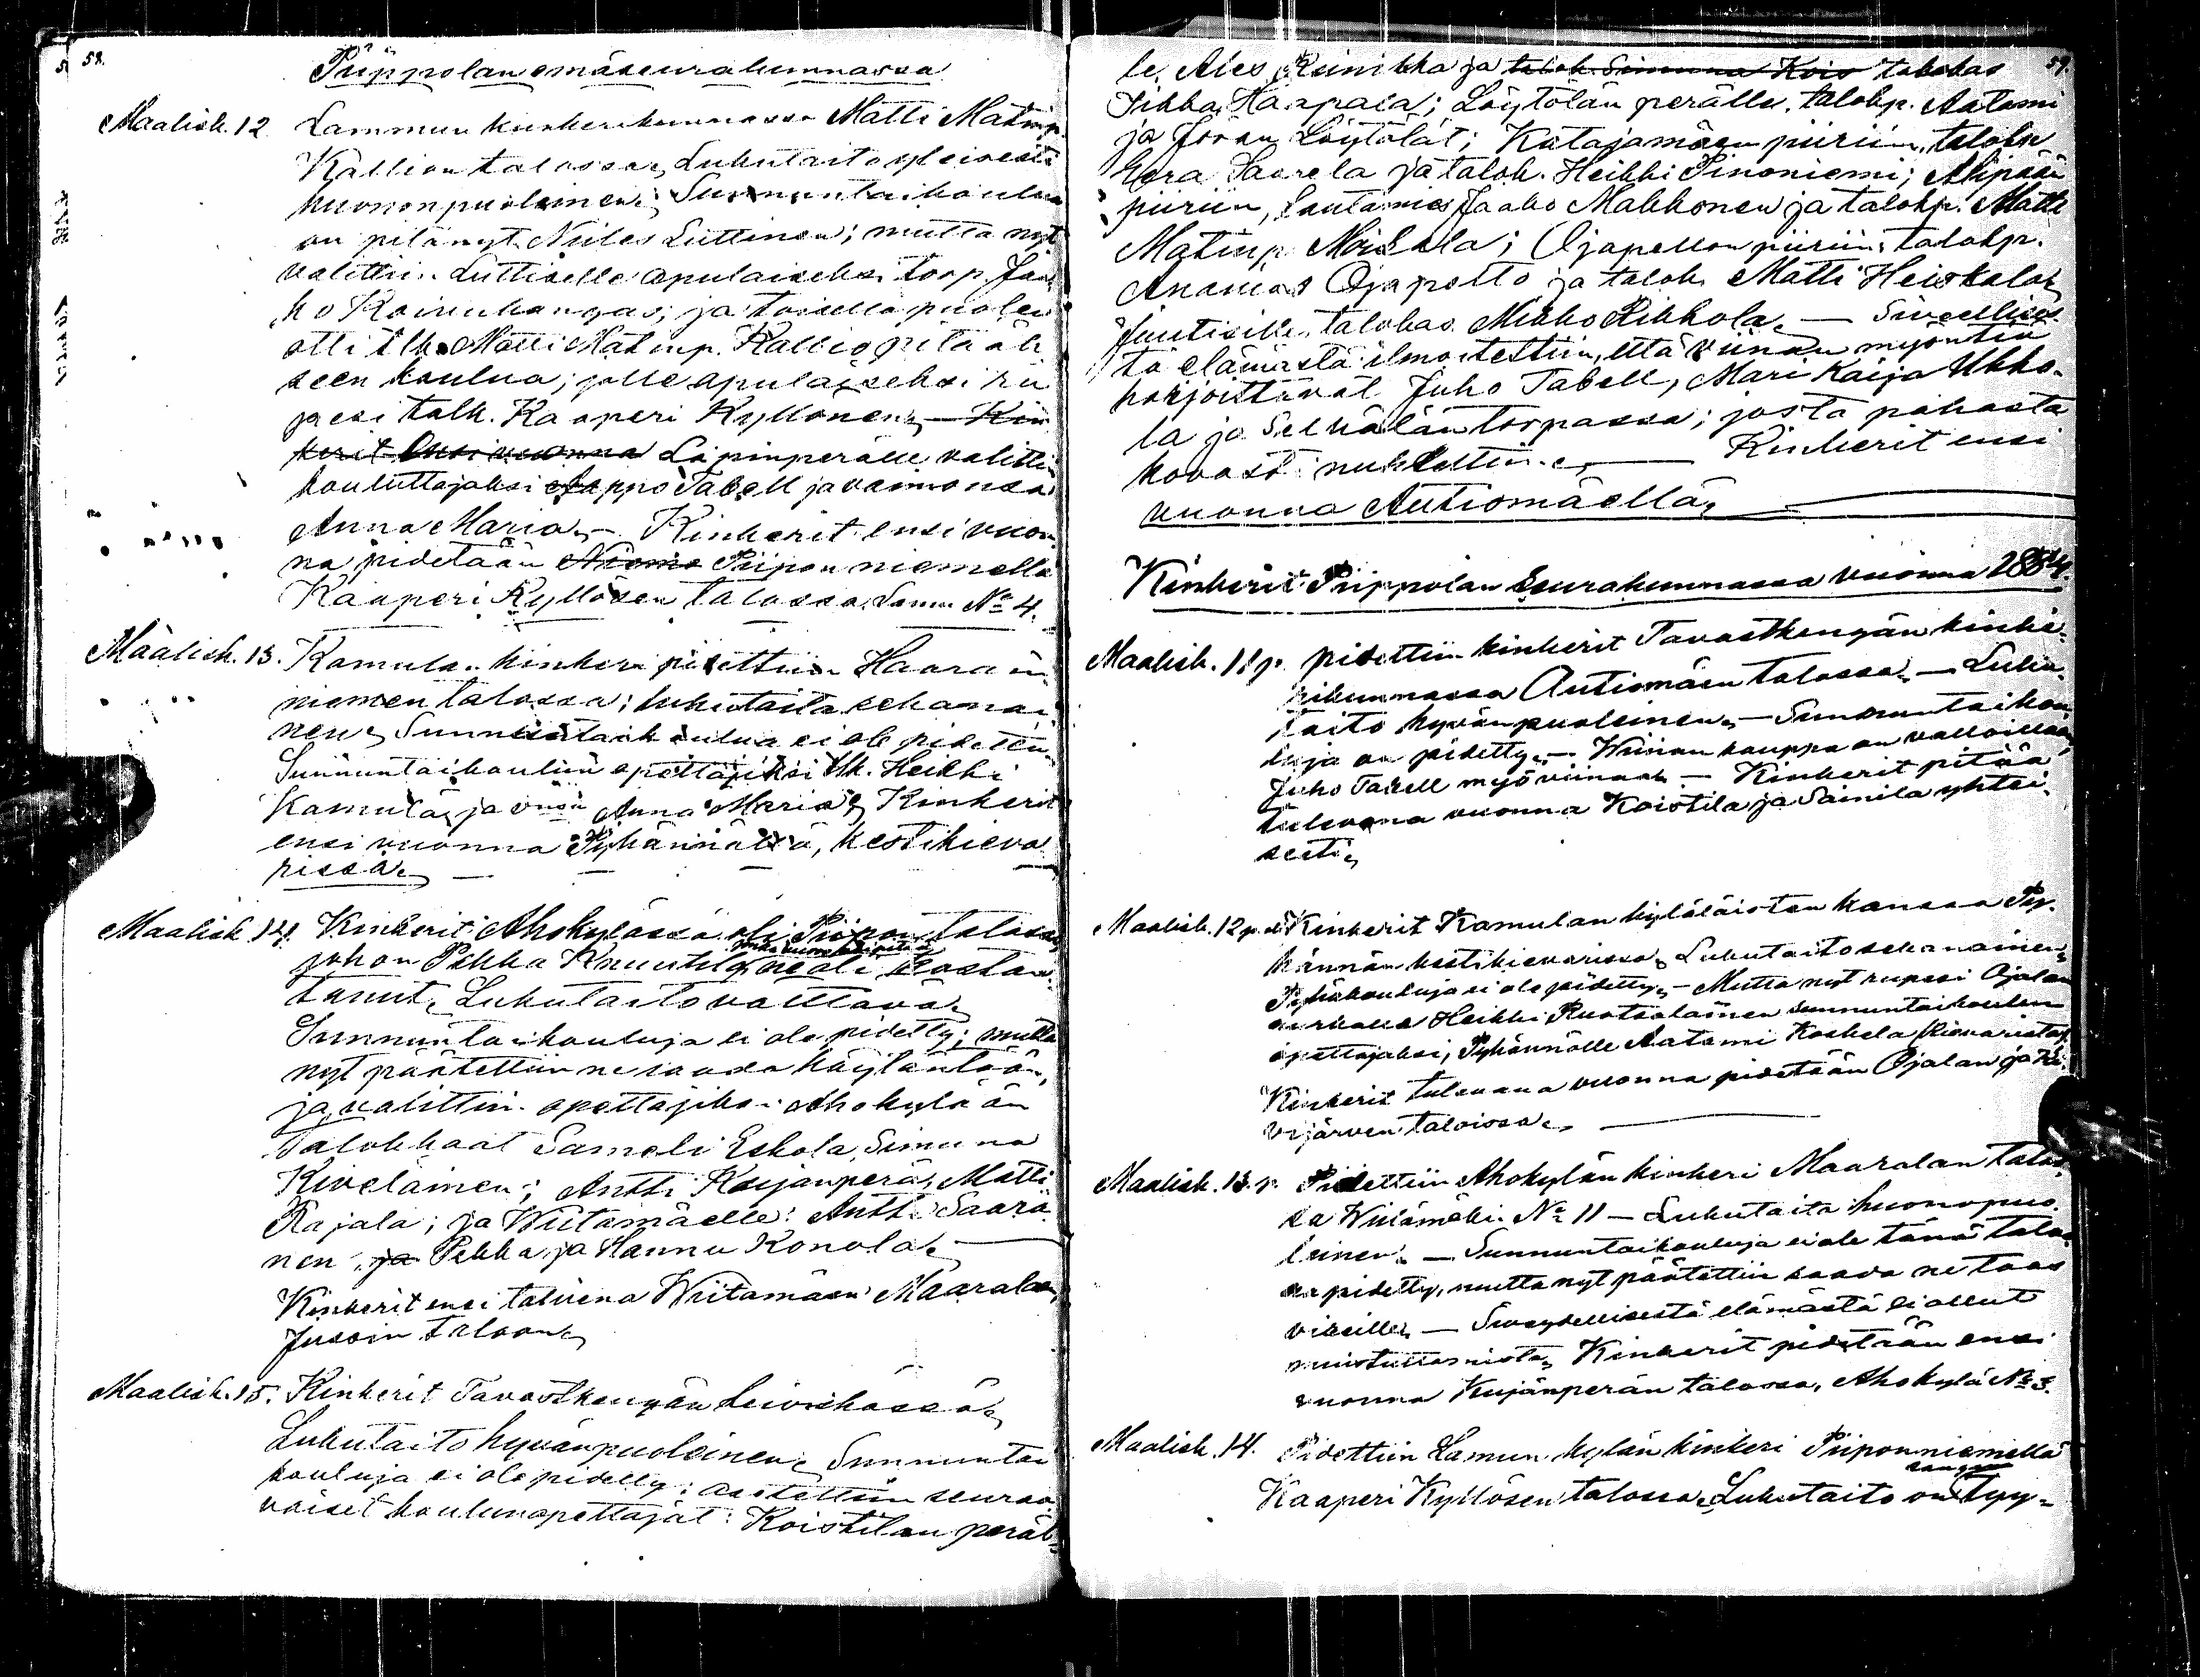 58.
Piippolan emäseurakunnassa
Maalisk. 12. Lammun kinkerikunnassa Matti Matinp.
Kallion talossa, Lukutaito yleisesti
huononpuoleinen; Sunnuntaikoulua
on pitänyt Niiles Luttinen; mutta nyt
valittiin Luttiselle apulaiseksi torp. Jaa
ko Kainukangas; ja toisella puolen
otti tlk. Matti Matinp. Kallio pitääk
seen koulua; jolle apulaiseksi ru
pesi talk. Kaaperi Kyllönen, — Kin
kerit Ensi vuonna Lapinperälle valittii
kouluttajaksi Jaappo Tabell ja vaimonsa
Anna Maria, — Kinkerit ensi vuon
na pidetään Niemi Piipon niemellä
Kaaperi Kyllösen talossa, Lamu No 4.
Maalisk. 13. Kamulan kinkeri pidettiin Haara
niemen talossa; lukutaito sekanai
nen, Sunnuntaikoulua ei ole pidetty
Sunnuntaikoulun opettajiksi tlk. Heikki
Kamula, ja Anna Maria, Kinkerit
ensi vuonna Pyhännällä, kestikieva
rissa,
Maalisk 14. Kinkerit Ahokylässä oli Piipon talossa
johon Pekka Knuutila ne oli kostan
tanut, Lukutaito valttava,
Sunnuntaikouluja ei ole pidetty; mutta
nyt päätettiin ne saada käytäntöön,
ja valittiin opettajiksi Ahokylään
Talokkaat Sameli Eskola, Simuna
Kiveläinen; Antti Kujanperä, Matti
Rajala; ja Wiitamäelle: Antti Saara
nen, ja Pekka ja Hannu Konola,
Kinkerit ensi talvena Wiitamäen Maaralan
Jussin taloon,
Maalisk. 15. Kinkerit Tavastkengän Leiviskässä,
Lukutaito hyvänpuoleinen, Sunnuntai
kouluja ei ole pidetty; asetettiin seuraa
vaiset koulunopettajat: Koistilan peräl=
59.
le, Ales Reinikka ja talok. Simuna Kois talokas
Jukka Haapala; Löytölän perälle, talokp. Aatami
ja Joran Löytölät; Katajamäen piiriin, talokn
Eera Saarela ja talok. Heikki Pinoniemi; Alipään
piiriin, Lautamies Jaako Makkonen ja talokp. Matti
Matinp. Moilala; Ojapellon piiriin, talokp.
Ananias Ojapelto ja talok. Matti Heiskala,
Juutisille, talokas Mikko Rikkola, — Siveellises
tä elämästä ilmoitettiin, että viinan myöntiä
harjoittavat Juho Tabell, Mari Kaija Ukko-
la ja Selkälän torpassa; josta pahasta
kovasti nuhdettiin, — Kinkerit ensi
vuonna Autiomäellä,
Kinkerit Piippolan Seurakunnassa vuonna 1884.
Maalisk. 11 p. pidettiin kinkerit Tavastkengän kinke-
rikunnassa Autiomäen talossa, — Luku-
taito hyvänpuoleinen, — Sunnuntaikou-
luja on pidetty, — Wiinan kauppa on valloillaan,
Juho Tabell myö viinaa, — Kinkerit pitää
tulevana vuonna Koistila ja Sainila yhtei-
sesti,
Maalisk. 12 p. Kinkerit Kamulan kyläläisten kanssa Py-
hännän kestikievarissa, Lukutaito sekanainen,
Pyhäkouluja ei ole pidetty, — Mutta nyt rupesi Ojalan
Heikki Ruotsalainen sunnuntaikoulun
opettajaksi, Pyhännälle Aatami Koskela (Kievarista)
Kinkerit tulevana vuonna pidetään Ojalan ja Ki-
vijärven taloissa,
Maalisk. 13. p. Pidettiin Ahokylän kinkeri Maaralan talos-
sa Wiitamäki No 11 — Lukutaito huonopuo-
leinen, — Sunnuntaikouluja ei ole tänä talve-
na pidetty, mutta nyt päätettiin saada ne taas
vireille, — Siveydellisestä elämästä ei ollut
muistuttamista, Kinkerit pidetään ensi
vuonna Kujanperän talossa, Ahokylä No 3.
Maalisk. 14. Pidettiin Lamun kylän kinkeri Piiponniemellä
Kaaperi Kyllösen talossa, Lukutaito on tyy=